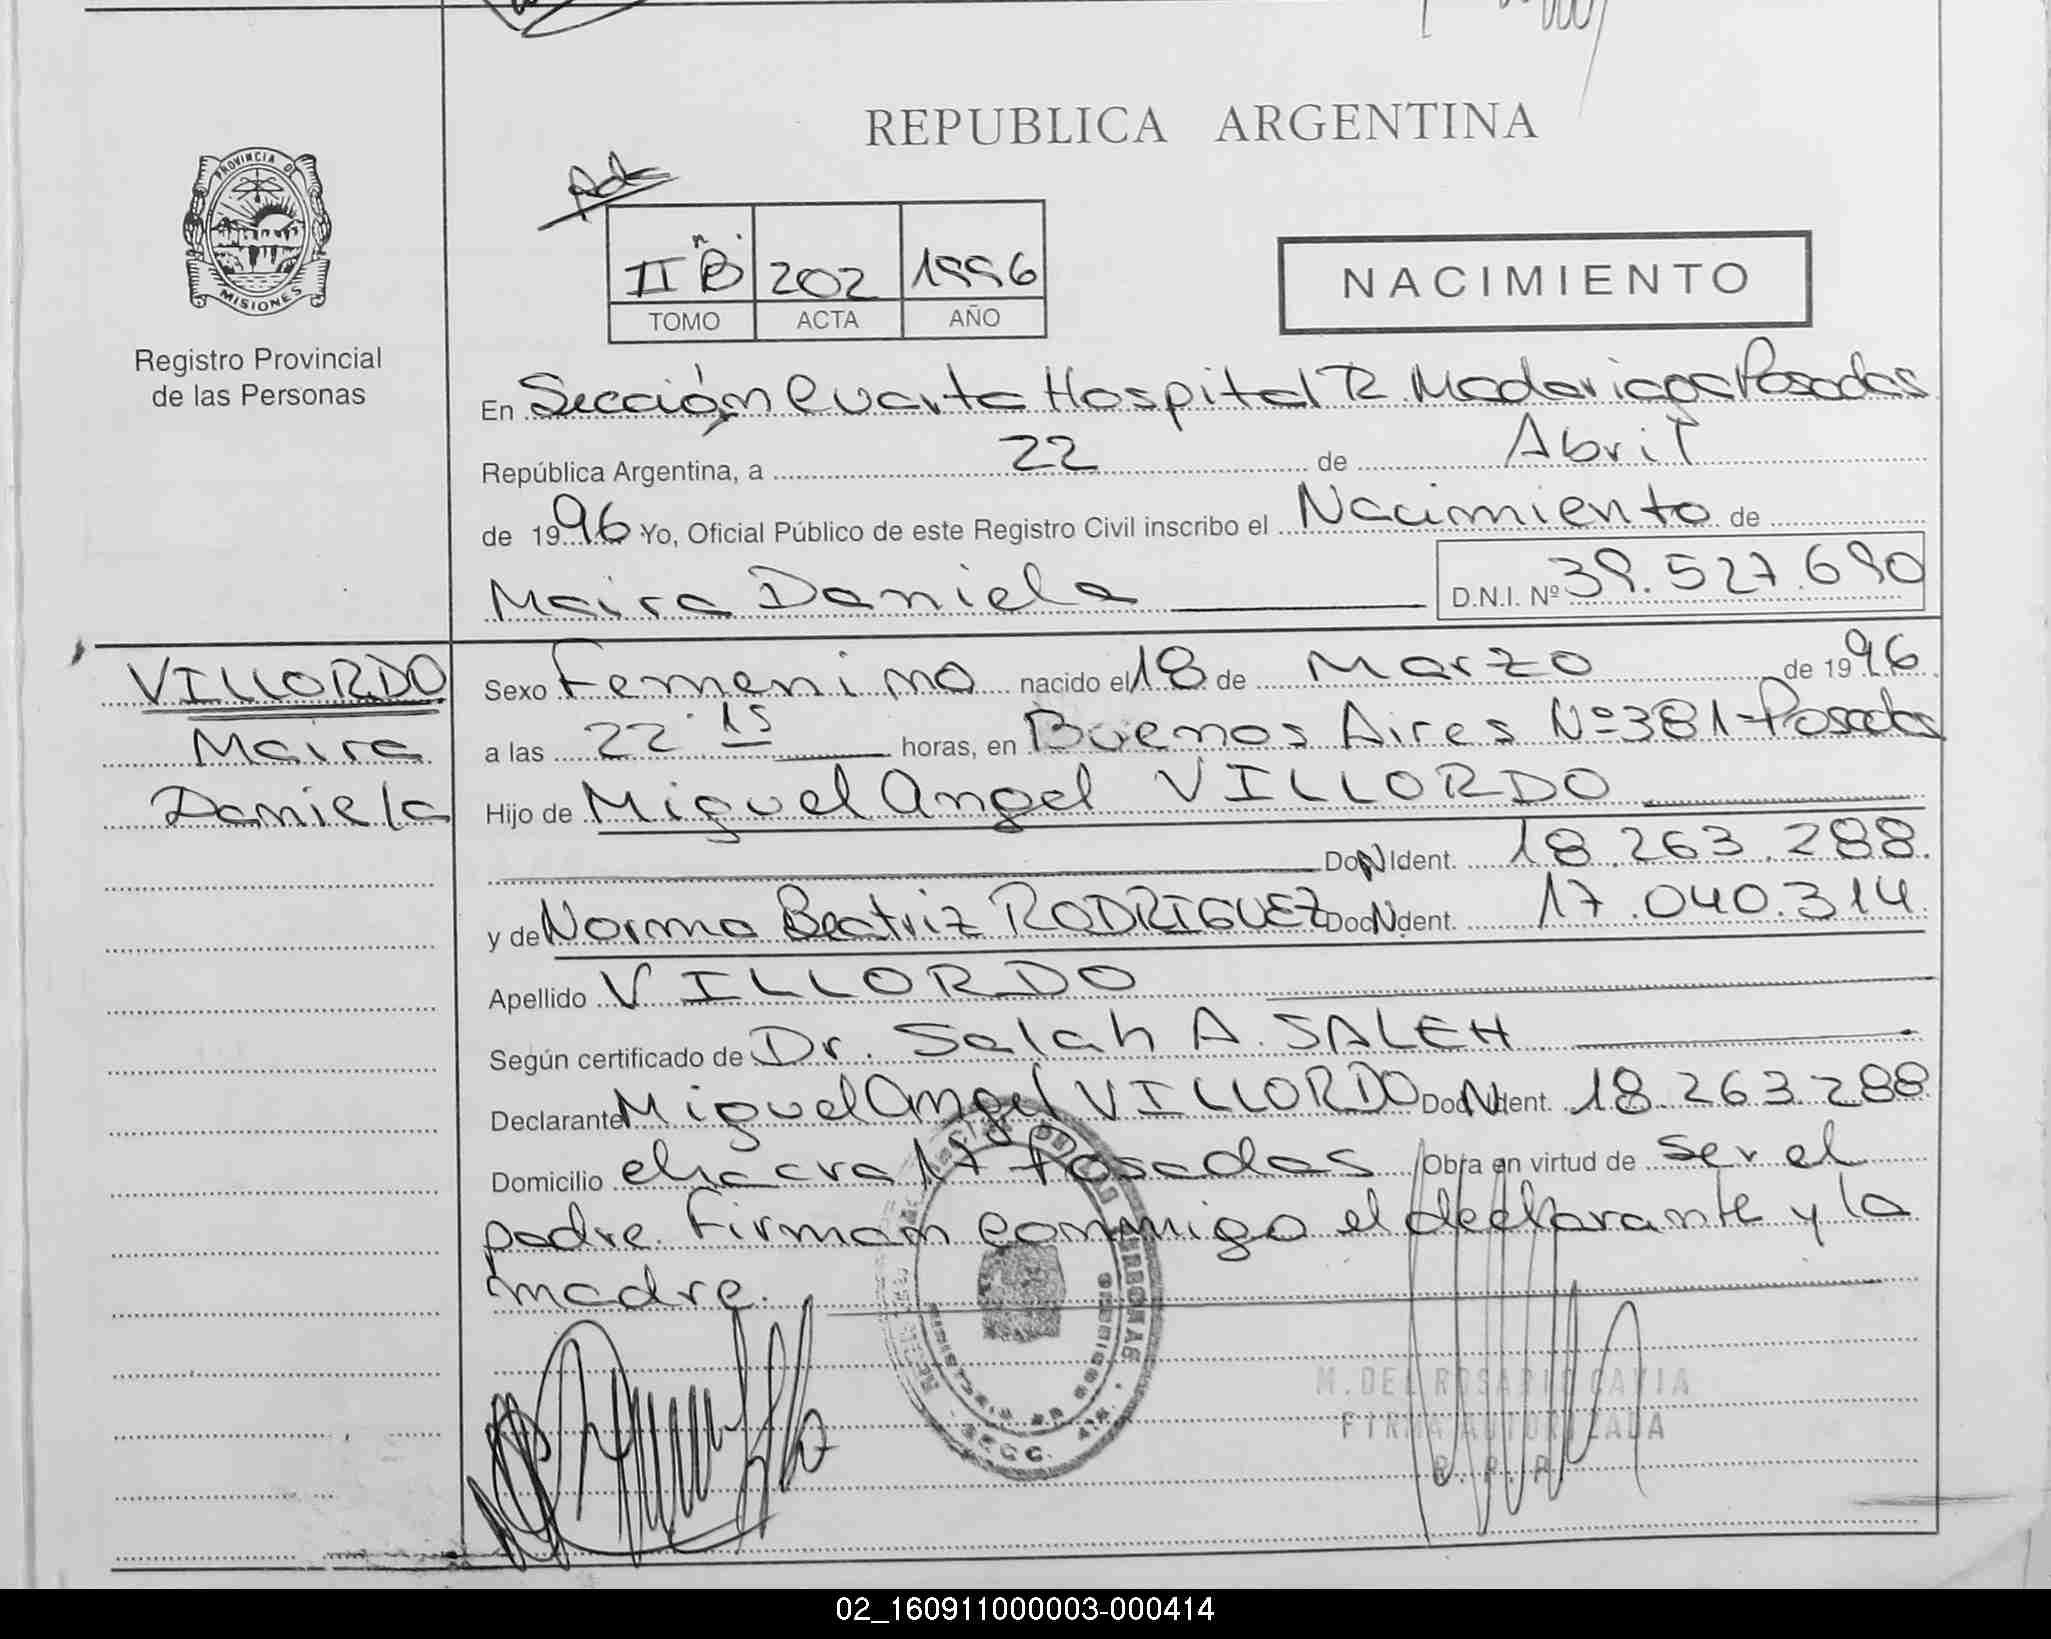 REPUBLICA ARGENTINA
PROVINCIA DE
MISIONES
Registro Provincial
de las Personas
IIºB 202 1996
TOMO ACTA AÑO
NACIMIENTO
En Sección Cuarta Hospital R. Madariaga Posadas
República Argentina, a 22 de Abril
de 1996 Yo, Oficial Público de este Registro Civil inscribo el Nacimiento de
Maira Daniela D.N.I. Nº 39.527.690
VILLORDO
Maira
Daniela
Sexo Femenino nacido el 18 de Marzo de 1996
a las 22 15 horas, en Buenos Aires Nº 381-Posadas
Hijo de Miguel Angel VILLORDO
Doc N Ident. 18.263.288
y de Norma Beatriz RODRIGUEZ Doc N Ident. 17.040.314
Apellido VILLORDO
Según certificado de Dr. Salah A. SALEH
Declarante Miguel Angel VILLORDO Doc N Ident. 18.263.288
Domicilio chacra 17 Posadas Obra en virtud de ser el
padre. Firman conmigo el declarante y la
madre.
M. DEL ROSARIO GAVIA
FIRMA AUTORIZADA
R. P. P.
02_160911000003-000414